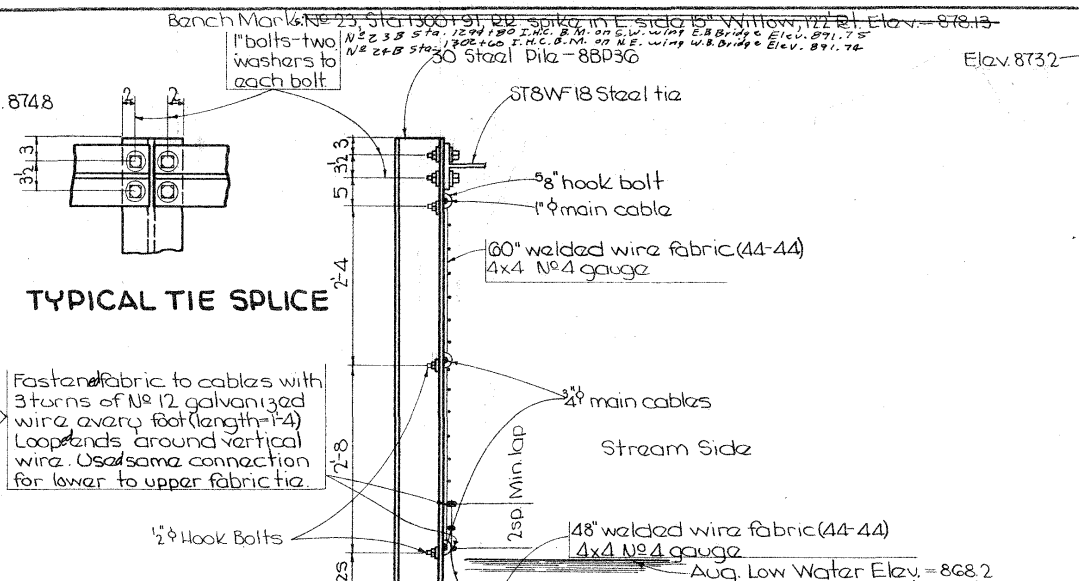 Bench Mark: Nº 23, Sta 1300+91, RR spike in E. side 15" Willow, 122' Rt. Elev. = 878.13
Nº 23B Sta. 1299+80 I.H.C. B.M. on S.W. wing E.B. Bridge Elev. 891.75
Nº 24B Sta. 1302+60 I.H.C. B.M. on N.E. wing W.B. Bridge Elev. 891.74
1" bolts-two
washers to
each bolt.
30' Steel Pile-8BP36
Elev. 873.2
ST8WF18 Steel tie
. 874.8
2 2
3
3½
3
3½
5
5/8" hook bolt
1"ϕ main cable
60" welded wire fabric (44-44)
4x4 Nº 4 gauge
2'-4
TYPICAL TIE SPLICE
Fasten fabric to cables with
3 turns of Nº 12 galvanized
wire every foot (length=1'-4)
Loop ends around vertical
wire. Use same connection
for lower to upper fabric tie.
¾"ϕ main cables
Stream Side
2'-8
2sp Min. lap
½"ϕ Hook Bolts
48" welded wire fabric (44-44)
4x4 Nº 4 gauge
Aug. Low Water Elev. = 868.2